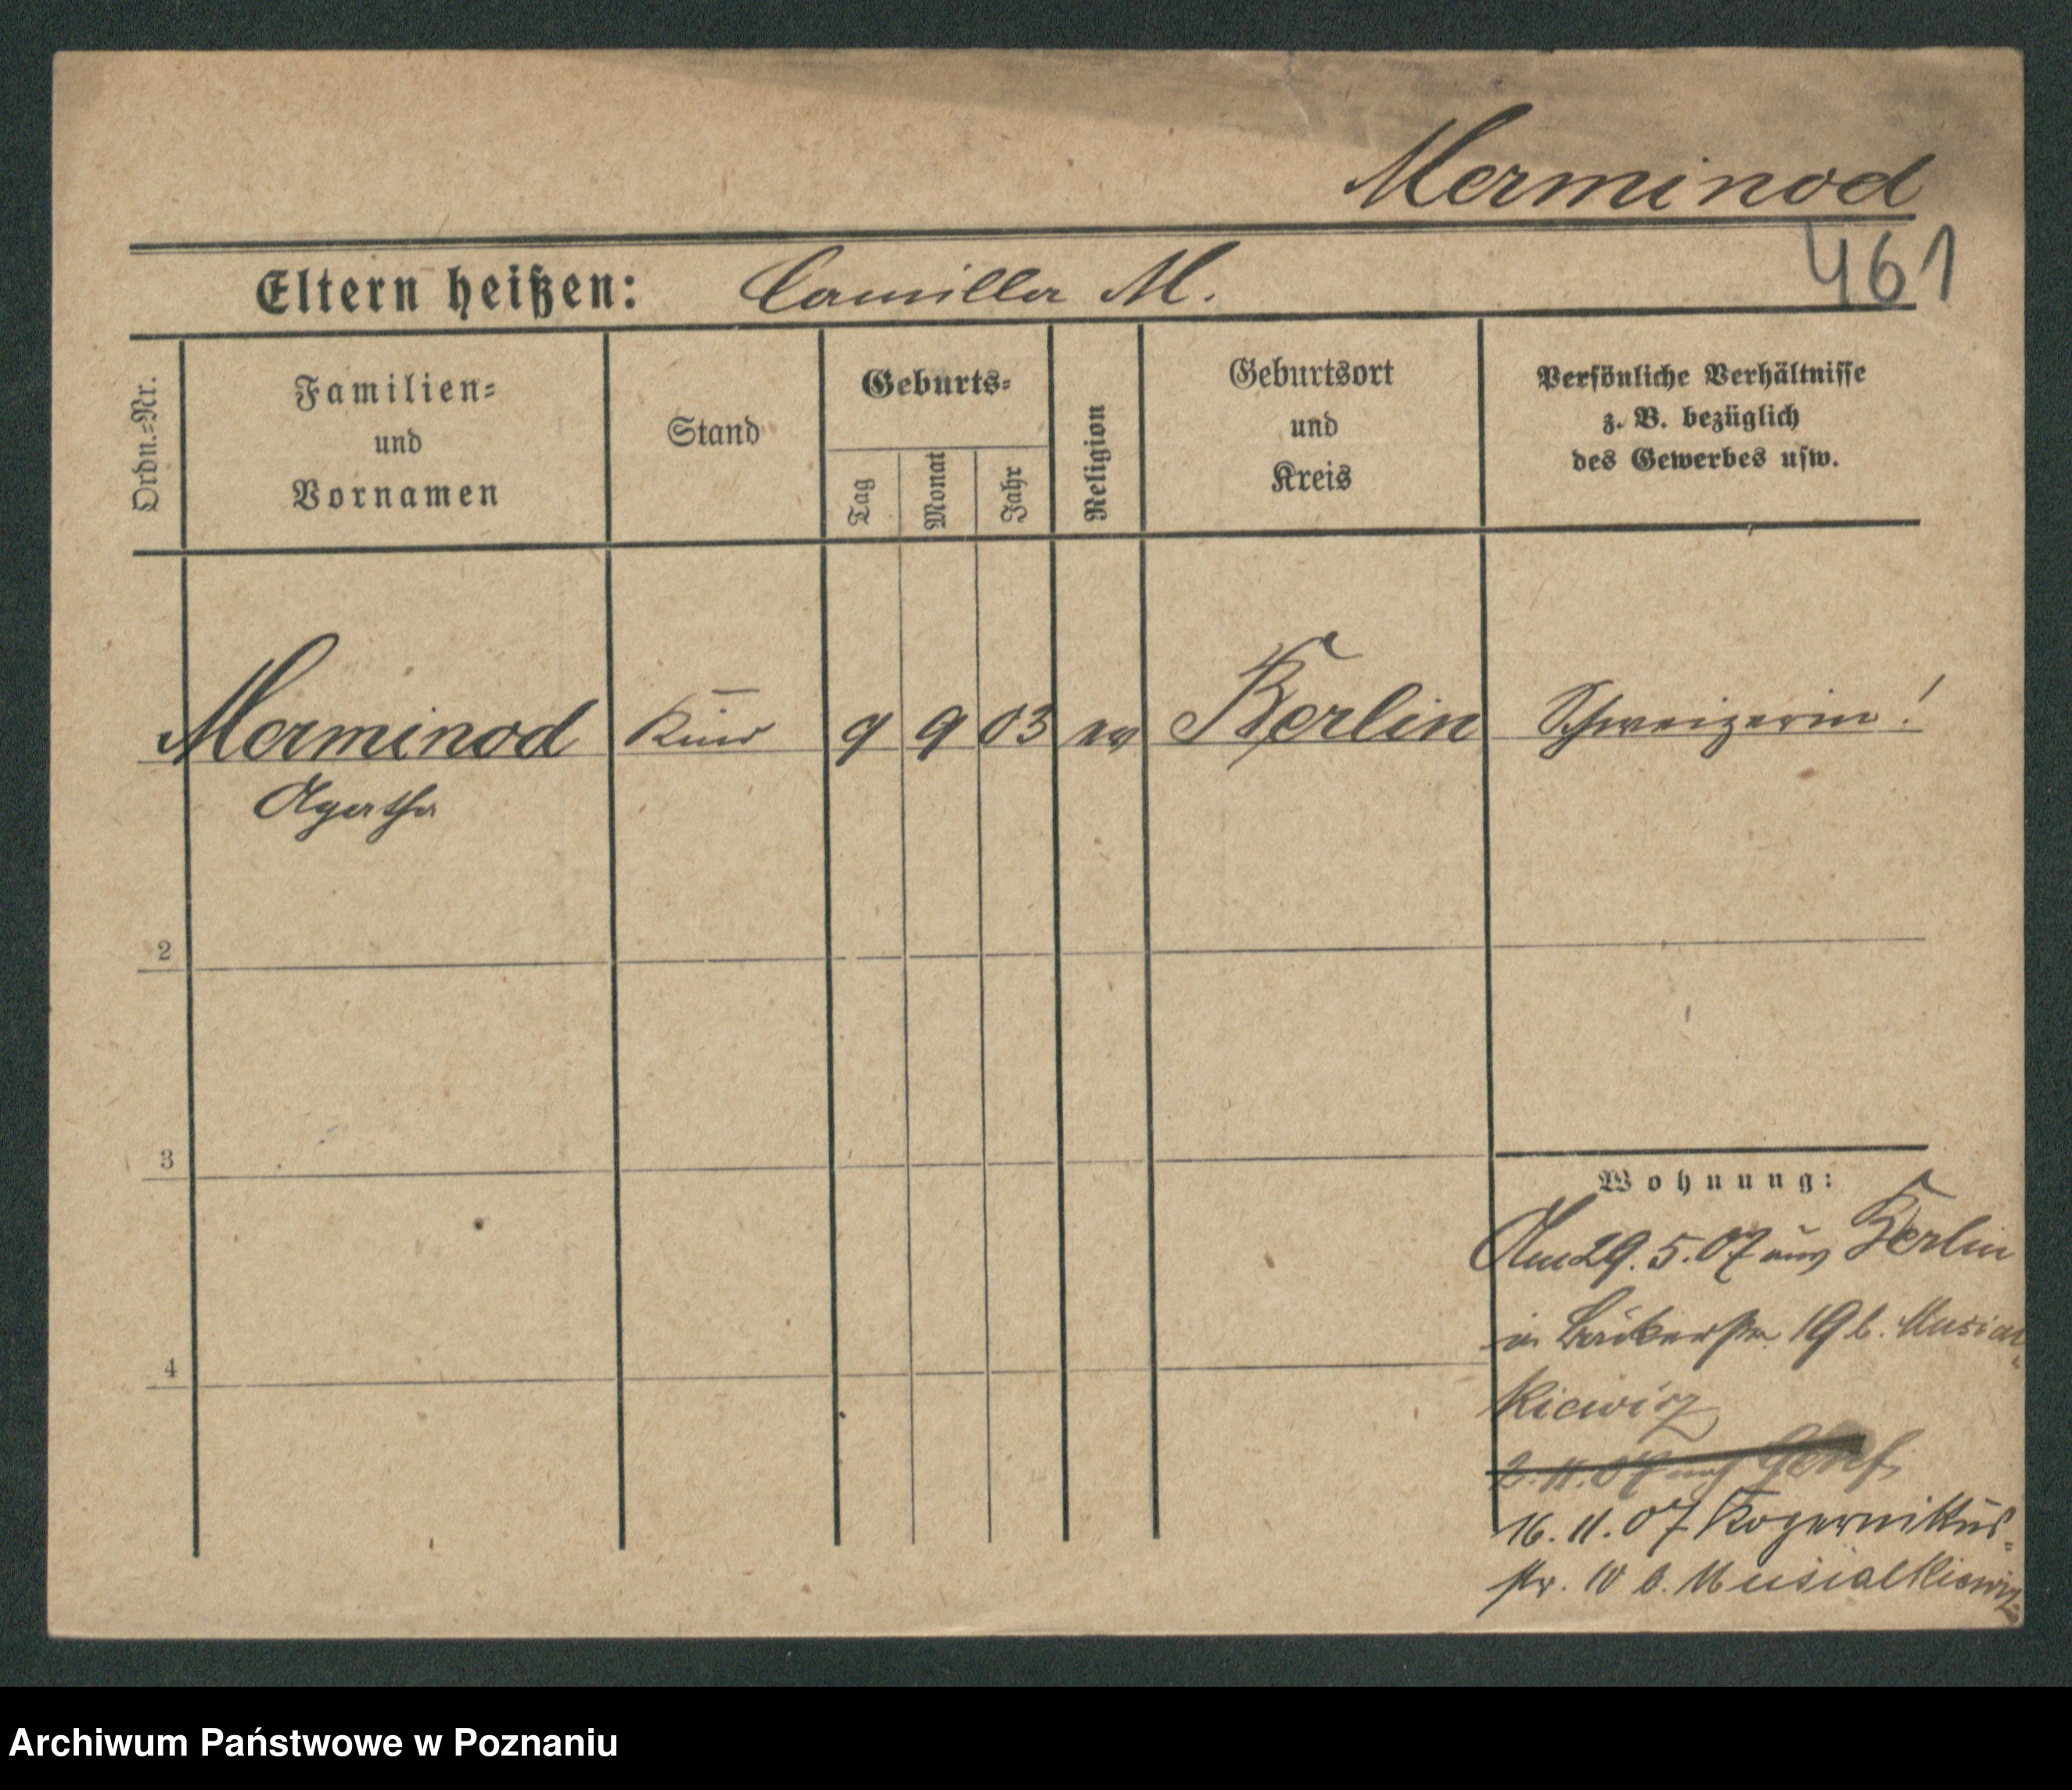 Merminod
461
Eltern heißen: Camilla M.
Ordn.-Nr.
Familien-
und
Vornamen
Stand
Geburts-
Tag
Monat
Jahr
Religion
Geburtsort
und
Kreis
Persönliche Verhältnisse
z. B. bezüglich
des Gewerbes usw.
Merminod Kind 9 9 03 ev Berlin Schweizerin!
Agatha
2
3
4
Wohnung:
Am 29. 5. 07 aus Berlin
in Bäckerstr 19 b. Musial-
kiewicz
2. 11. 07 nach Genf
16. 11. 07 Kopernikus-
str. 10 b. Musialkiewicz
Archiwum Państwowe w Poznaniu